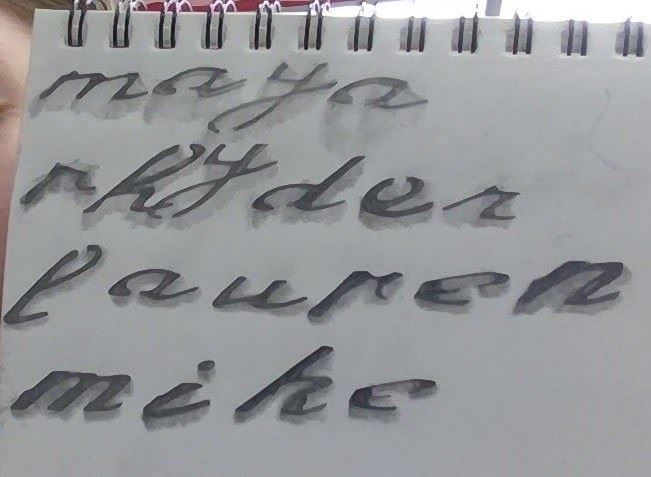 maya
rhyder
lauren
mike